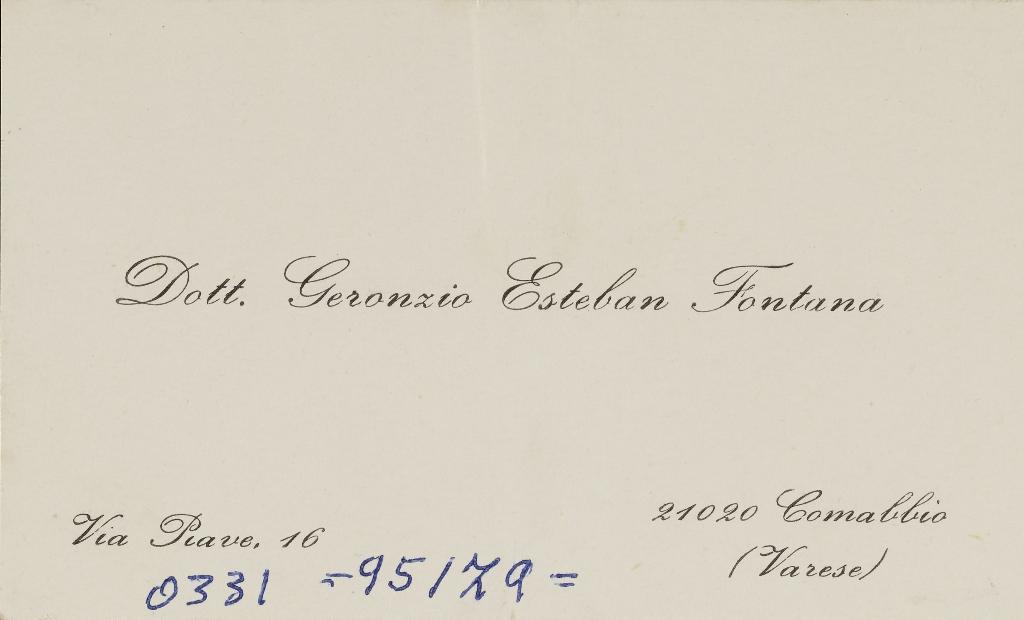 Dott. Geronzio Esteban Fontana
Via Piave, 16
21020 Comabbio
(Varese)
0331 =95179=